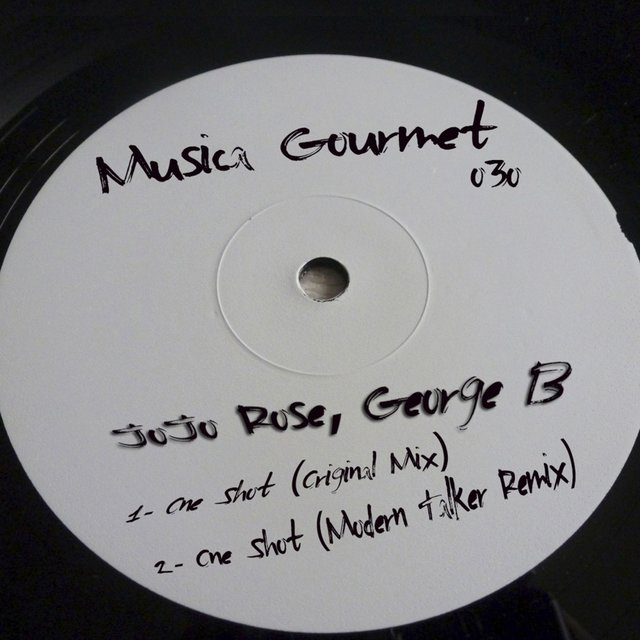 Musica Gourmet
030
JoJo Rose, George B
1- One Shot (Original Mix)
2- One Shot (Modern Talker Remix)